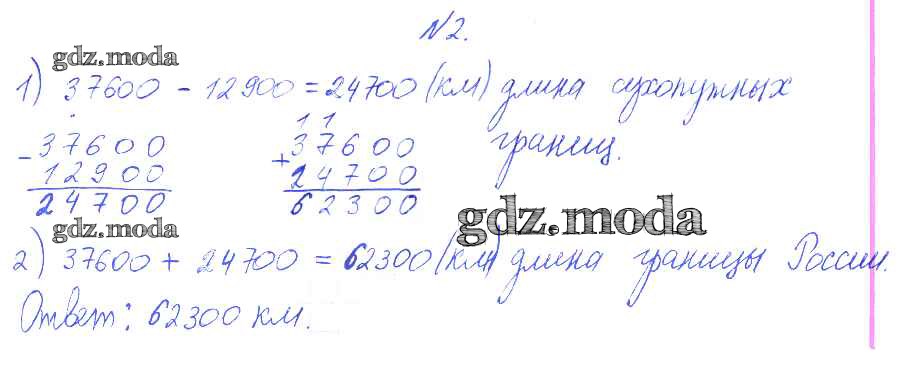 №2.
gdz.moda
1) 37600 - 12900 = 24700 (км) длина сухопутных
границ.
- 37600
12900
24700
1 1
+ 37600
24700
62300
gdz.moda
gdz.moda
2) 37600 + 24700 = 62300 (км) длина границы России.
Ответ: 62300 км.